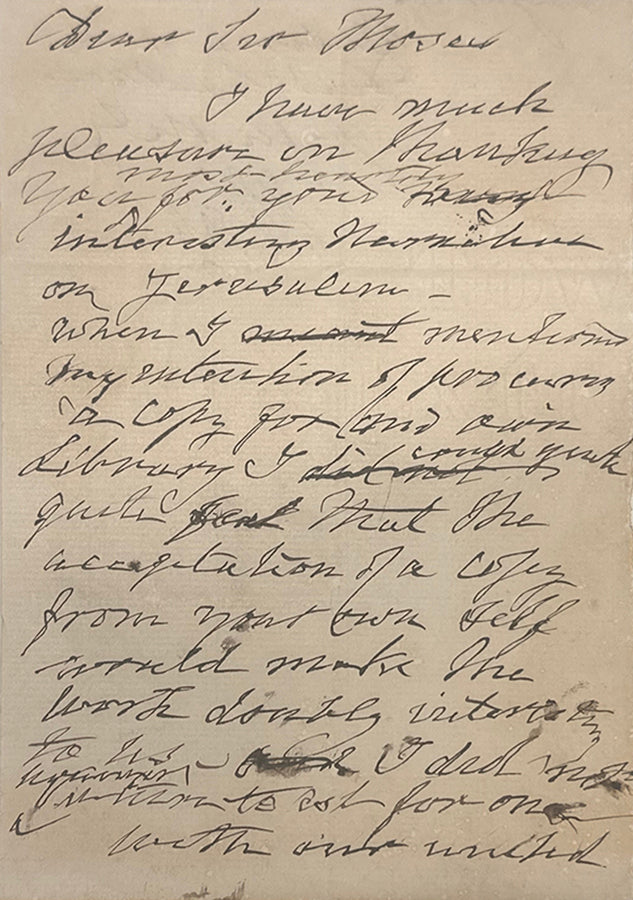 Dear Sir Moses
I have much
pleasure in thanking
most heartily
you for your
interesting Narrative
on Jerusalem –
when I meant mentioned
my intention of procuring
a copy for our own
Library I did not could quite
quite feel that the
acceptation of a copy
from your own self
would make the
work doubly interesting
to us – I did not
however
intend to ask for one
with our united